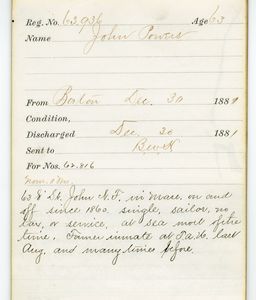 Reg. No. 63,936 Age 63
Name John Powers
From Boston Dec. 30 1881
Condition,
Discharged Dec. 30 1881
Sent to B.W.H
For Nos. 62,816
63 E St. John N.F. in Mass. on and
off since 1860. single, sailor, no
tax, or service, at sea most of the
time. Former inmate at T.a.H. last
Aug. and many times before.